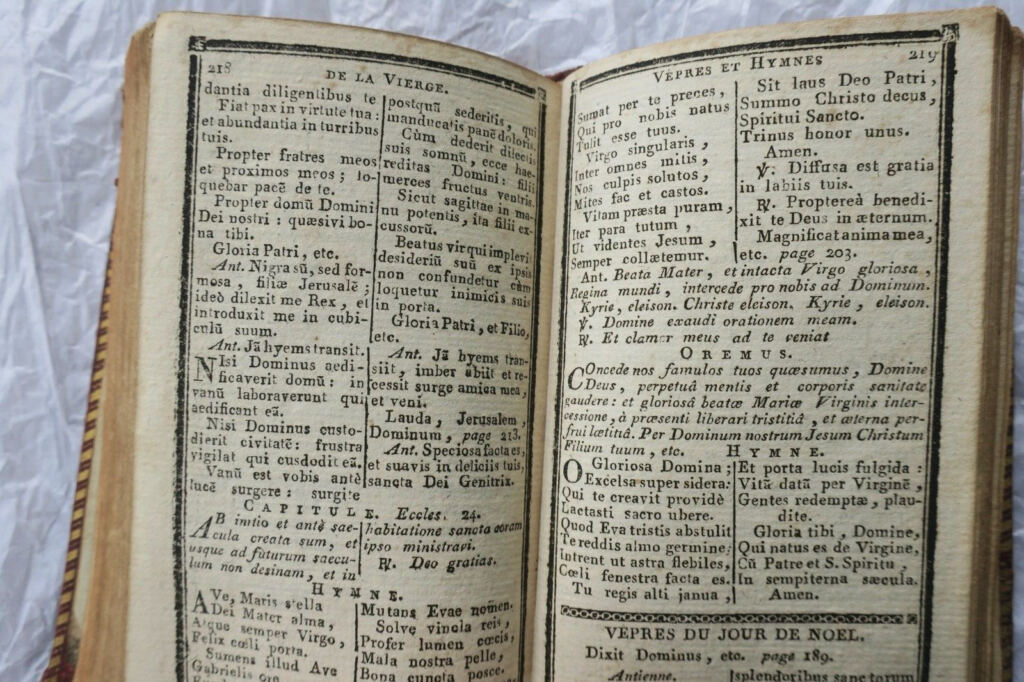 218
DE LA VIERGE.
dantia diligentibus te
Fiat pax in virtute tua :
et abundantia in turribus
tuis.
Propter fratres meos
et proximos meos ; lo-
quebar pacē de te.
Propter domū Domini
Dei nostri : quæsivi bo-
na tibi.
Gloria Patri, etc.
Ant. Nigra sū, sed for-
mosa, filiæ Jerusalē ;
ideò dilexit me Rex, et
introduxit me in cubi-
culū suum.
Ant. Jā hyems transit.
NIsi Dominus aedi-
ficaverit domū : in
vanū laboraverunt qui
aedificant eā.
Nisi Dominus custo-
dierit civitatē : frustra
vigilat qui cusdodit eā.
Vanū est vobis antè
lucē surgere : surgite
postquā sederitis, qui
manducatis panē doloris.
Cùm dederit dilectis
suis somnū, ecce hae-
reditas Domini : filii
merces fructus ventris.
Sicut sagittae in ma-
nu potentis, ita filii ex-
cussorū.
Beatus vir qui implevit
desideriū suū ex ipsis
non confundetur cùm
loquetur inimicis suis
in porta.
Gloria Patri, et Filio,
etc.
Ant. Jā hyems tran-
siit, imber abiit et re-
cessit surge amica mea,
et veni.
Lauda, Jerusalem,
Dominum, page 213.
Ant. Speciosa facta es,
et suavis in deliciis tuis,
sancta Dei Genitrix.
CAPITULE. Eccles. 24.
AB initio et antè sae-
cula creata sum, et
usque ad futurum saecu-
lum non desinam, et in
habitatione sancta coram
ipso ministravi.
℟. Deo gratias.
HYMNE.
AVe, Maris stella
Dei Mater alma,
Atque semper Virgo,
Felix cœli porta.
Sumens illud Ave
Gabrielis ore
Mutans Evae nomen.
Solve vincla reis,
Profer lumen cœcis,
Mala nostra pelle,
Bona cuncta posce.
VÊPRES ET HYMNES
219
Sumat per te preces,
Qui pro nobis natus
Tulit esse tuus.
Virgo singularis,
Inter omnes mitis,
Nos culpis solutos,
Mites fac et castos.
Vitam præsta puram,
Iter para tutum,
Ut videntes Jesum,
Semper collætemur.
Sit laus Deo Patri,
Summo Christo decus,
Spiritui Sancto.
Trinus honor unus.
Amen.
℣. Diffusa est gratia
in labiis tuis.
℟. Propterea benedi-
xit te Deus in æternum.
Magnificat anima mea,
etc. page 203.
Ant. Beata Mater, et intacta Virgo gloriosa,
Regina mundi, intercede pro nobis ad Dominum.
Kyrie, eleison. Christe eleison. Kyrie, eleison.
℣. Domine exaudi orationem meam.
℟. Et clamor meus ad te veniat
OREMUS.
COncede nos famulos tuos quæsumus, Domine
Deus, perpetuâ mentis et corporis sanitate
gaudere : et gloriosâ beatæ Mariæ Virginis inter-
cessione, à præsenti liberari tristitiâ, et æterna per-
frui lætitiâ. Per Dominum nostrum Jesum Christum
Filium tuum, etc.
HYMNE.
O Gloriosa Domina ;
Excelsa super sidera:
Qui te creavit providè
Lactasti sacro ubere.
Quod Eva tristis abstulit
Te reddis almo germine;
Intrent ut astra flebiles,
Cœli fenestra facta es.
Tu regis alti janua,
Et porta lucis fulgida :
Vitā datā per Virginē,
Gentes redemptæ, plau-
dite.
Gloria tibi, Domine,
Qui natus es de Virgine,
Cū Patre et S. Spiritu,
In sempiterna sæcula.
Amen.
VÊPRES DU JOUR DE NOEL.
Dixit Dominus, etc. page 189.
Antienne.
splendoribus sanctorum